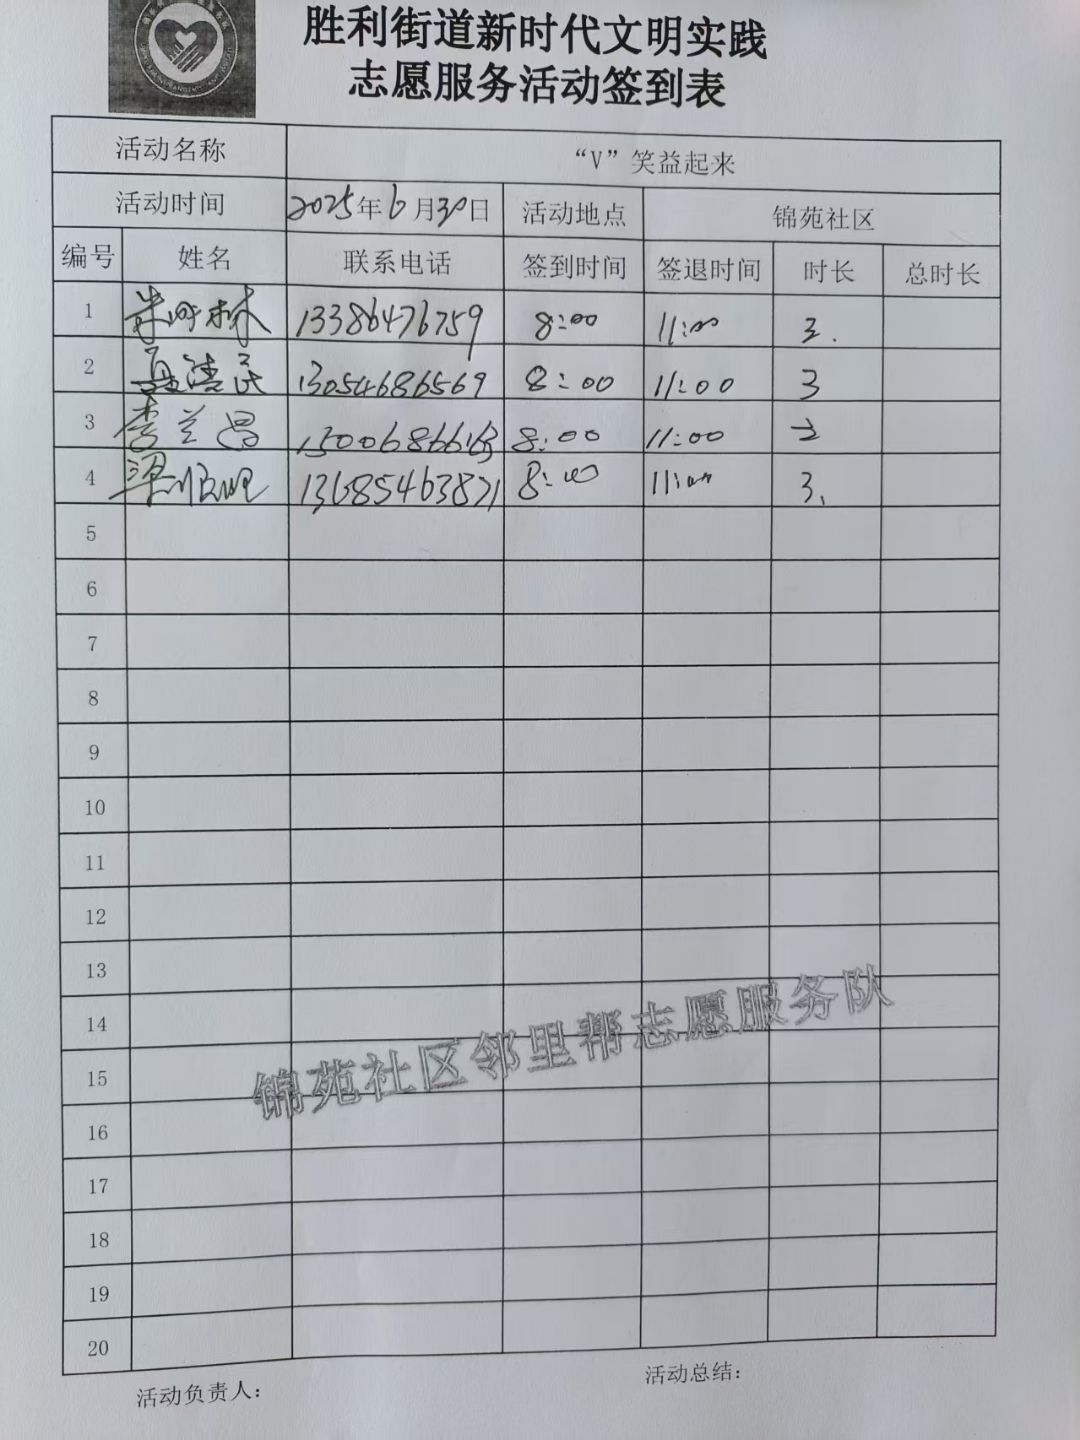 胜利街道新时代文明实践
志愿服务活动签到表
活动名称 “V”笑益起来
活动时间 2025年6月30日 活动地点 锦苑社区
编号 姓名 联系电话 签到时间 签退时间 时长 总时长
1 林 13386476759 8:00 11:00 3.
2 民 13054686569 8:00 11:00 3
3 李兰昌 8:00 11:00
4 梁 13685463871 8:00 11:00 3.
5
6
7
8
9
10
11
12
13
14
15
16
17
18
19
20
锦苑社区邻里帮志愿服务队
活动负责人:
活动总结: